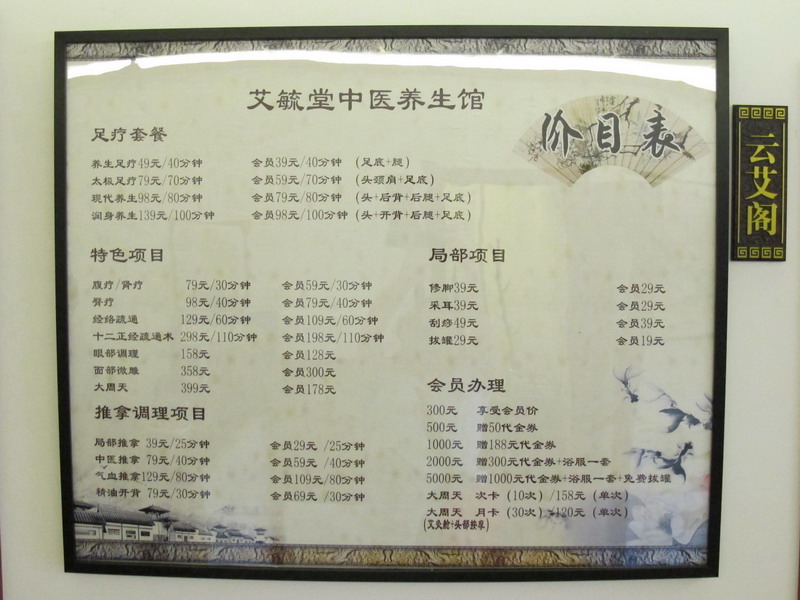 艾毓堂中医养生馆
价目表
云艾阁
足疗套餐
养生足疗49元/40分钟 会员39元/40分钟 (足底+腿)
太极足疗79元/70分钟 会员59元/70分钟 (头颈肩+足底)
现代养生98元/80分钟 会员79元/80分钟 (头+后背+后腿+足底)
润身养生139元/100分钟 会员98元/100分钟 (头+开背+后腿+足底)
特色项目
腹疗/肾疗 79元/30分钟 会员59元/30分钟
臀疗 98元/40分钟 会员79元/40分钟
经络疏通 129元/60分钟 会员109元/60分钟
十二正经疏通术 298元/110分钟 会员198元/110分钟
眼部调理 158元 会员128元
面部微雕 358元 会员300元
大周天 399元 会员178元
推拿调理项目
局部推拿 39元/25分钟 会员29元 /25分钟
中医推拿 79元/40分钟 会员59元 /40分钟
气血推拿129元/80分钟 会员109元/80分钟
精油开背 79元/30分钟 会员69元 /30分钟
局部项目
修脚39元 会员29元
采耳39元 会员29元
刮痧49元 会员39元
拔罐29元 会员19元
会员办理
300元 享受会员价
500元 赠50代金券
1000元 赠188元代金券
2000元 赠300元代金券+浴服一套
5000元 赠1000元代金券+浴服一套+免费拔罐
大周天 次卡 (10次) /158元 (单次)
大周天 月卡 (30次) /120元 (单次)
(艾灸舱+头部按摩)